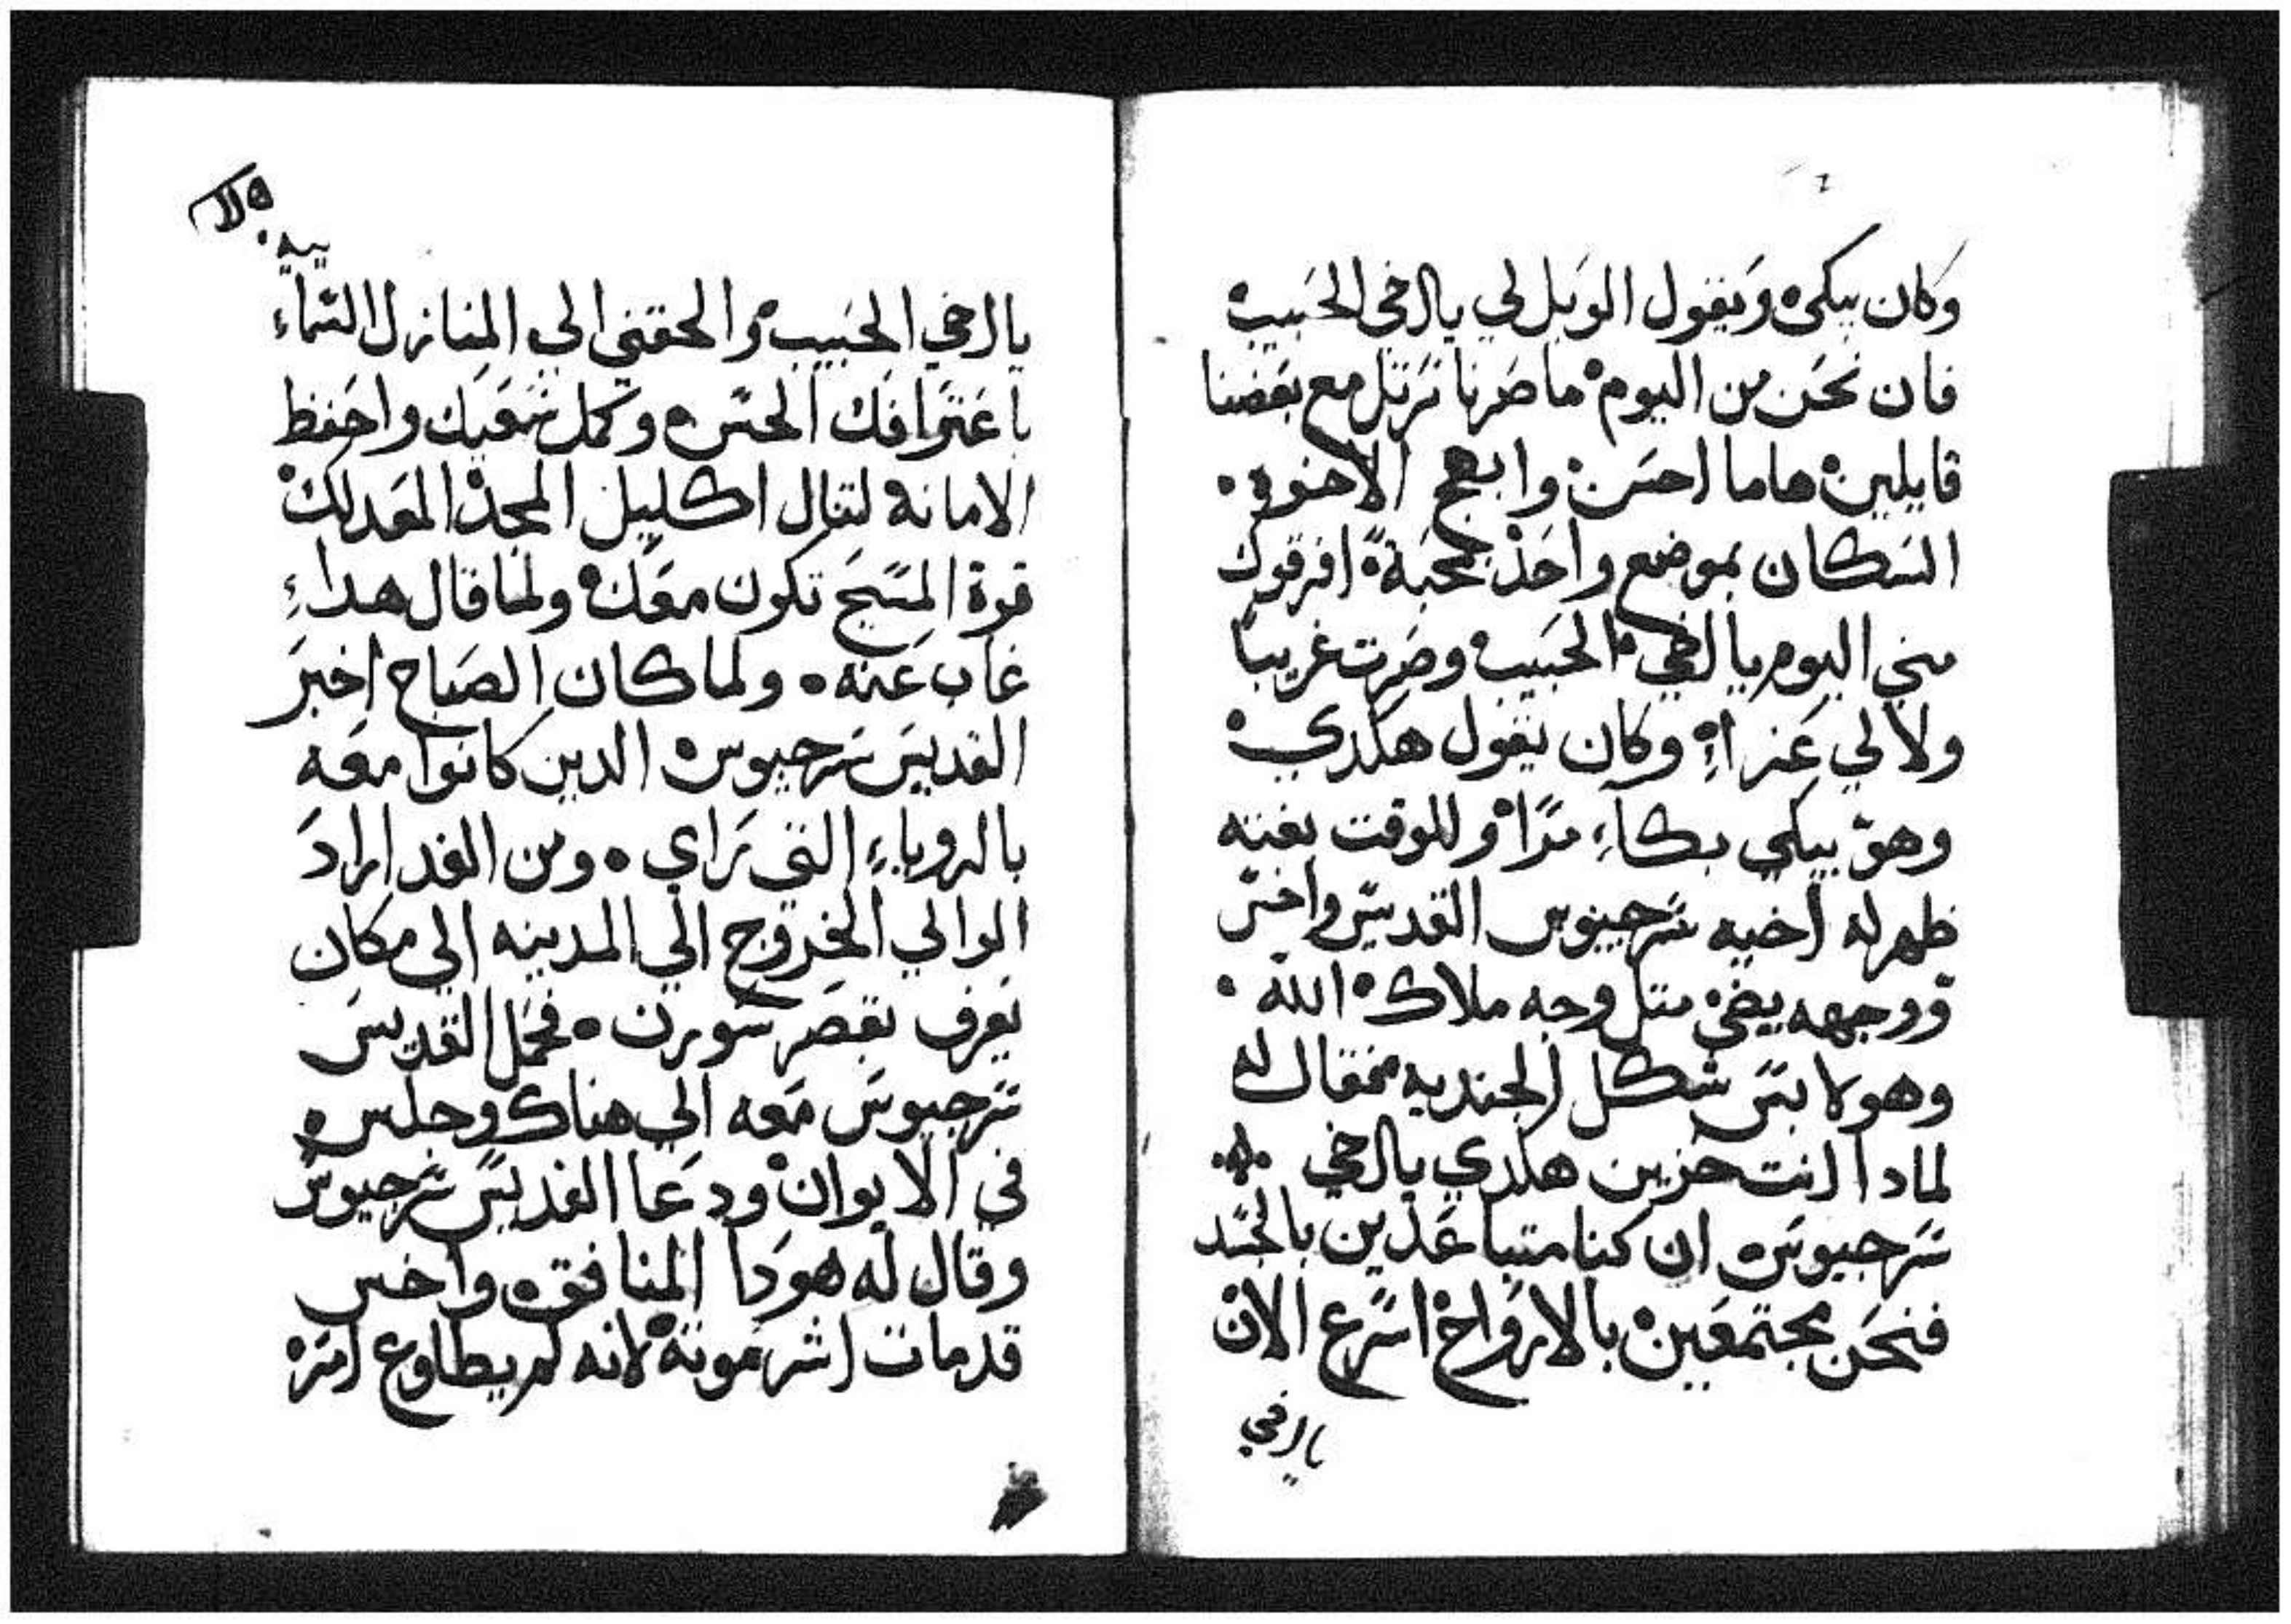 وكان يبكي ويقول الويل لي يا اخي الحبيب
فان نحن من اليوم ما صرنا نرتل مع بعضنا
قايلين هاما احسن وابهج الاخوه
السكان بموضع واحد بمحبة افرقوك
مني اليوم يا اخي الحبيب وصرت غريبا
ولا لي عزاء وكان يقول هكدي
وهو يبكي بكاء مرا وللوقت بغته
ظهر له اخيه سرجيوس القديس واخس
ووجهه يضي متل وجه ملاك الله
وهو لابس شكل الجنديه فقال له
لمادا انت حزين هكدي يا اخي
سرجيوس ان كنا متباعدين بالجسد
فنحن مجتمعين بالارواح اسرع الان
يا اخي
يا اخي الحبيب والحقني الي المنازل السماء
باعترافك الحسن وكمل سعيك واحفظ
الامانه لتنال اكليل المجد المعد لك
قوة المسيح تكون معك ولما قال هداء
غاب عنه ولما كان الصباح اخبر
القديس سرجيوس الدين كانوا معه
بالروياء التي راي ومن الغد اراد
الوالي الخروج الي المدينه الي مكان
يعرف بقصر سورن فحمل القديس
سرجيوس معه الي هناك وجلس
في الايوان ودعا القديس سرجيوس
وقال له هودا المنافق واخس
قد مات اشر موتة لانه لم يطاوع امره